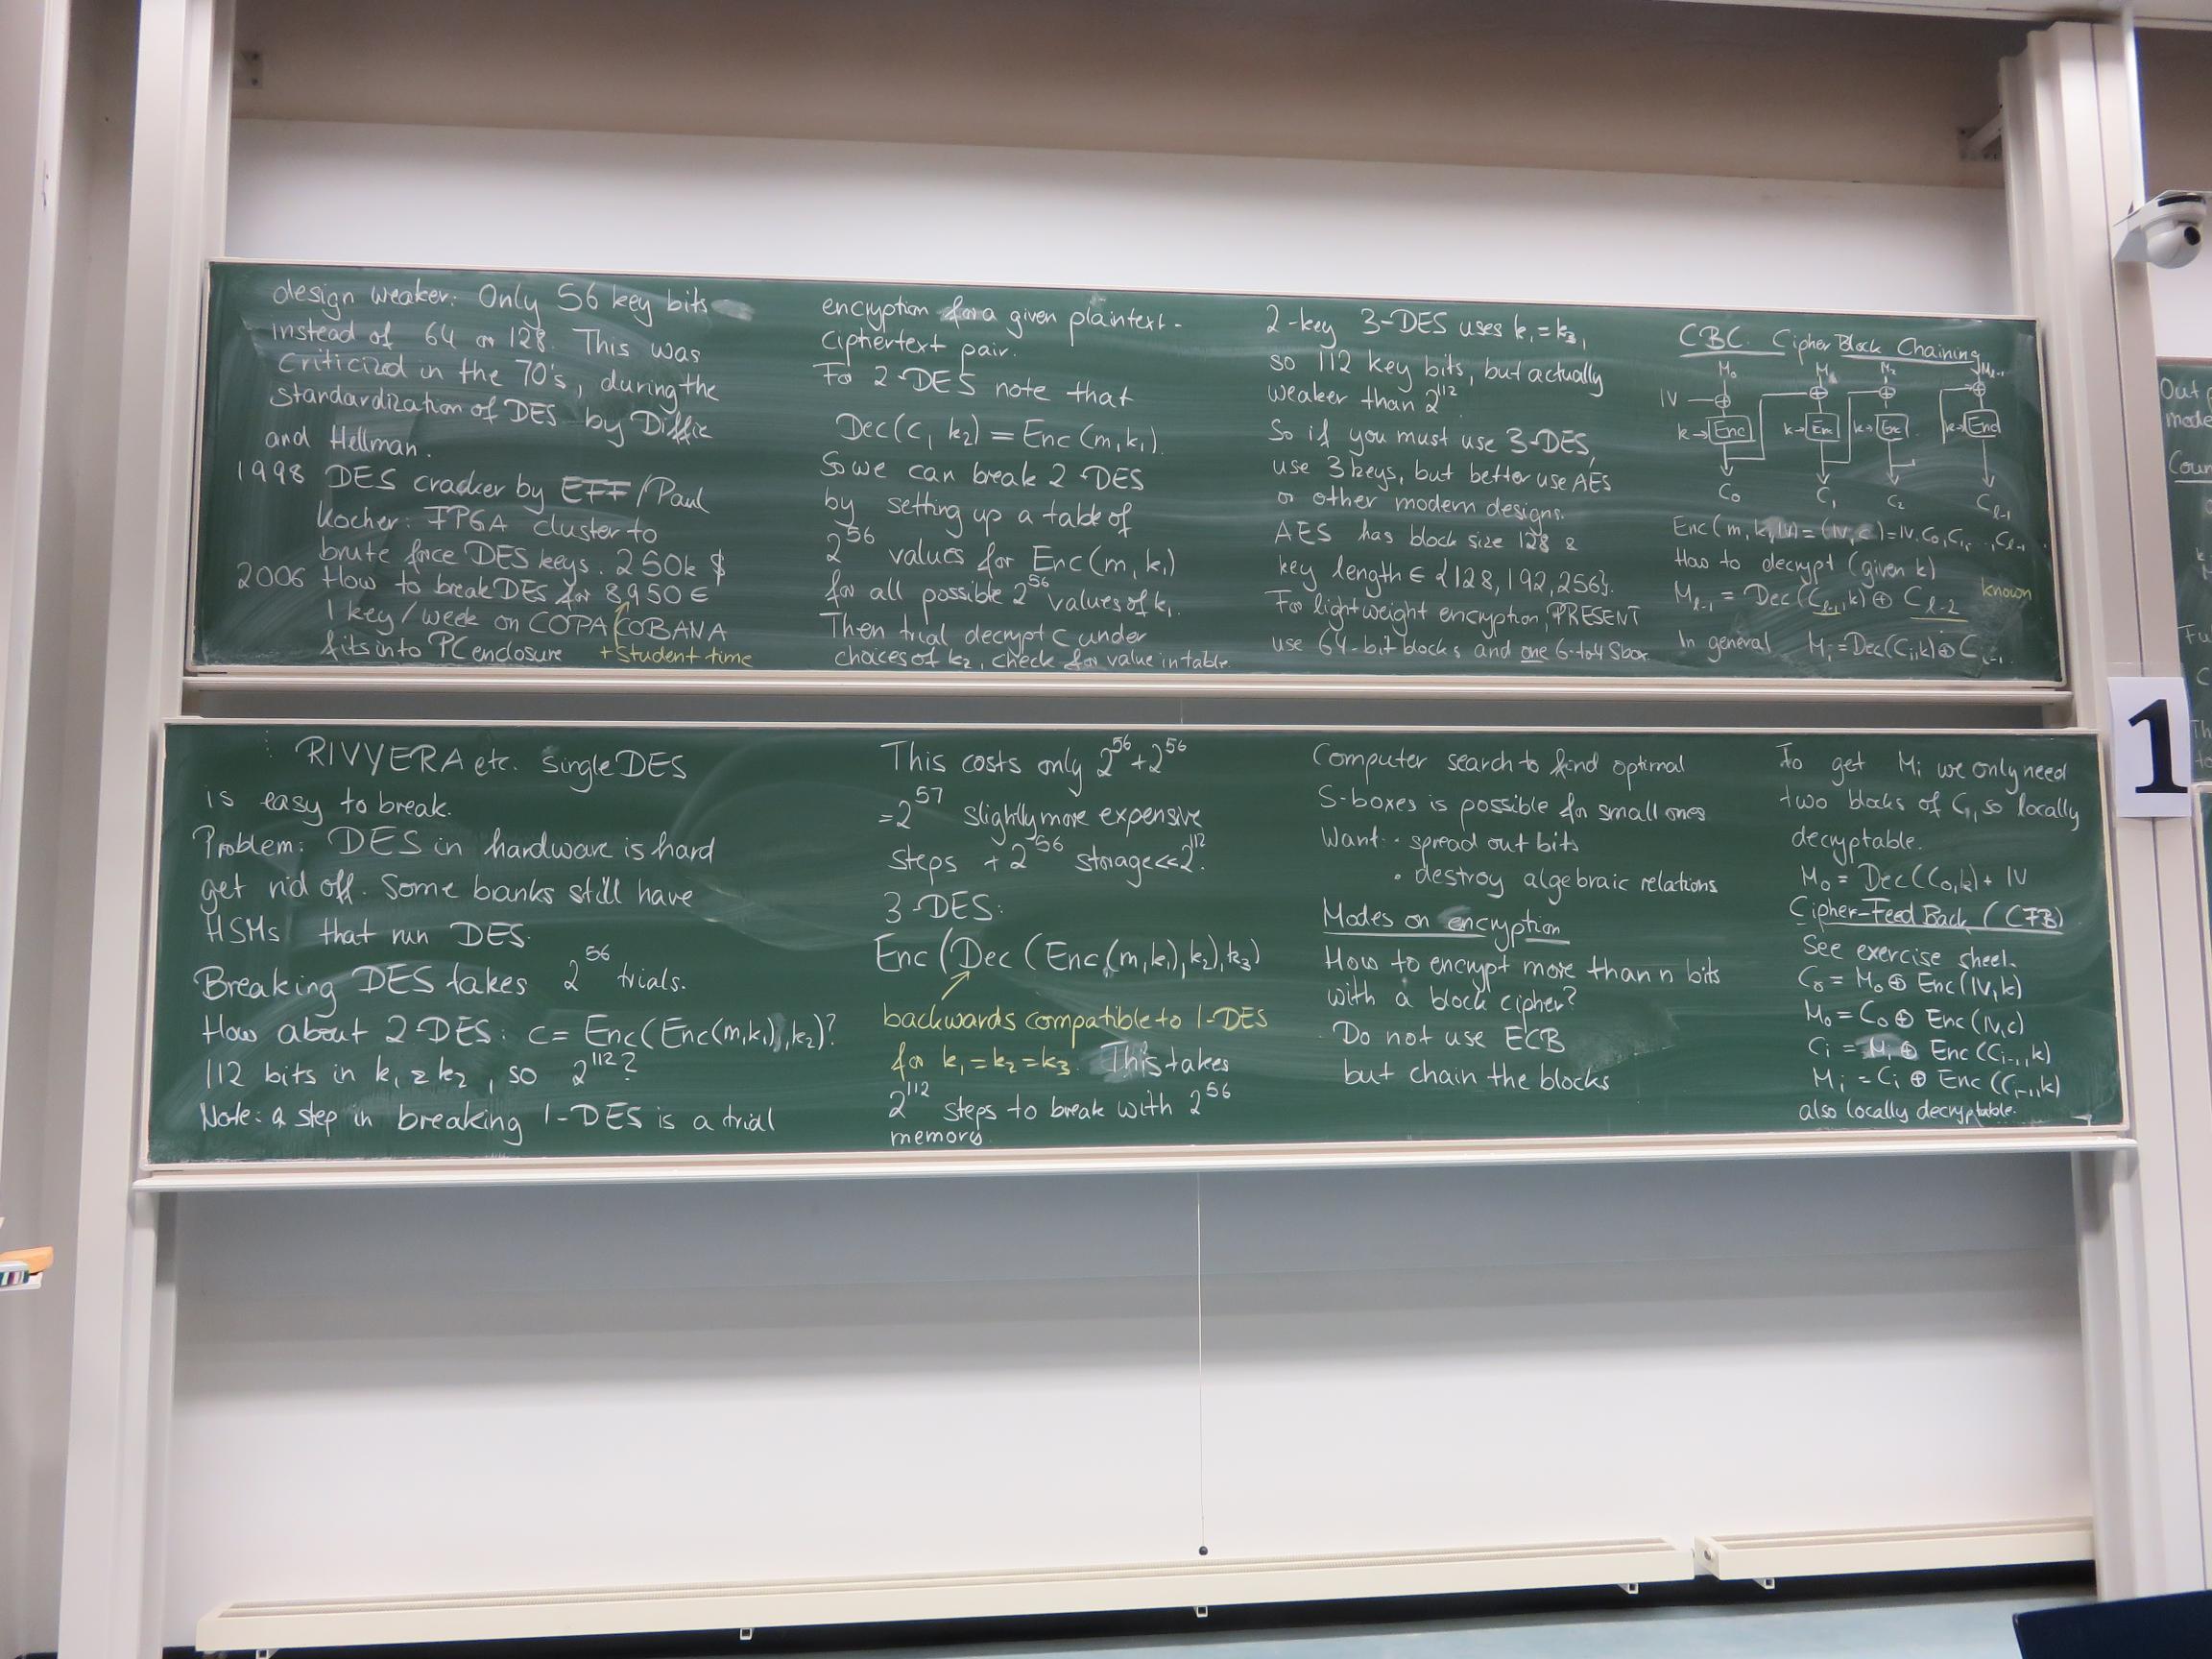 design weaker: Only 56 key bits
instead of 64 or 128. This was
criticized in the 70's, during the
standardization of DES by Diffie
and Hellman.
1998 DES cracker by EFF/Paul
Kocher: FPGA cluster to
brute force DES keys. 250k $
2006 How to break DES for 8950 €
1 key/week on COPACOBANA
fits into PC enclosure + student time
encryption for a given plaintext-
ciphertext pair.
For 2-DES note that
Dec(c, k₂) = Enc(m, k₁).
So we can break 2-DES
by setting up a table of
2⁵⁶ values for Enc(m, k₁)
for all possible 2⁵⁶ values of k₁.
Then trial decrypt c under
choices of k₂, check for value in table.
2-key 3-DES uses k₁=k₃,
so 112 key bits, but actually
weaker than 2¹¹².
So if you must use 3-DES,
use 3 keys, but better use AES
or other modern designs.
AES has block size 128 &
key length ∈ {128, 192, 256}.
For lightweight encryption, PRESENT
use 64-bit blocks and one 6-to4 Sbox.
CBC. Cipher Block Chaining
M₀ M₁ M₂ Mℓ₋₁
IV
k→ Enc k→ Enc k→ Enc k→ Enc
C₀ C₁ C₂ Cℓ₋₁
Enc(m, k, IV) = (IV, c) = IV, C₀, C₁, ..., Cℓ₋₁.
How to decrypt (given k)
Mℓ₋₁ = Dec(Cℓ₋₁, k) ⊕ Cℓ₋₂ known
In general Mᵢ = Dec(Cᵢ, k) ⊕ Cᵢ₋₁.
RIVYERA etc. Single DES
is easy to break.
Problem: DES in hardware is hard
get rid off. Some banks still have
HSMs that run DES.
Breaking DES takes 2⁵⁶ trials.
How about 2-DES: c = Enc(Enc(m,k₁),k₂)?
112 bits in k₁ & k₂, so 2¹¹²?
Note: a step in breaking 1-DES is a trial
This costs only 2⁵⁶+2⁵⁶
=2⁵⁷ slightly more expensive
steps + 2⁵⁶ storage << 2¹¹².
3-DES:
Enc(Dec(Enc(m,k₁),k₂),k₃)
backwards compatible to 1-DES
for k₁=k₂=k₃. This takes
2¹¹² steps to break with 2⁵⁶
memory.
Computer search to find optimal
S-boxes is possible for small ones
Want: · spread out bits
· destroy algebraic relations
Modes on encryption
How to encrypt more than n bits
with a block cipher?
Do not use ECB
but chain the blocks
To get Mᵢ we only need
two blocks of C, so locally
decryptable.
M₀ = Dec(C₀,k) + IV
Cipher-Feed Back (CFB)
See exercise sheet.
C₀ = M₀ ⊕ Enc(IV,k)
M₀ = C₀ ⊕ Enc(IV,c)
Cᵢ = Mᵢ ⊕ Enc(Cᵢ₋₁,k)
Mᵢ = Cᵢ ⊕ Enc(Cᵢ₋₁,k)
also locally decryptable.
1
Out
mode
Coun